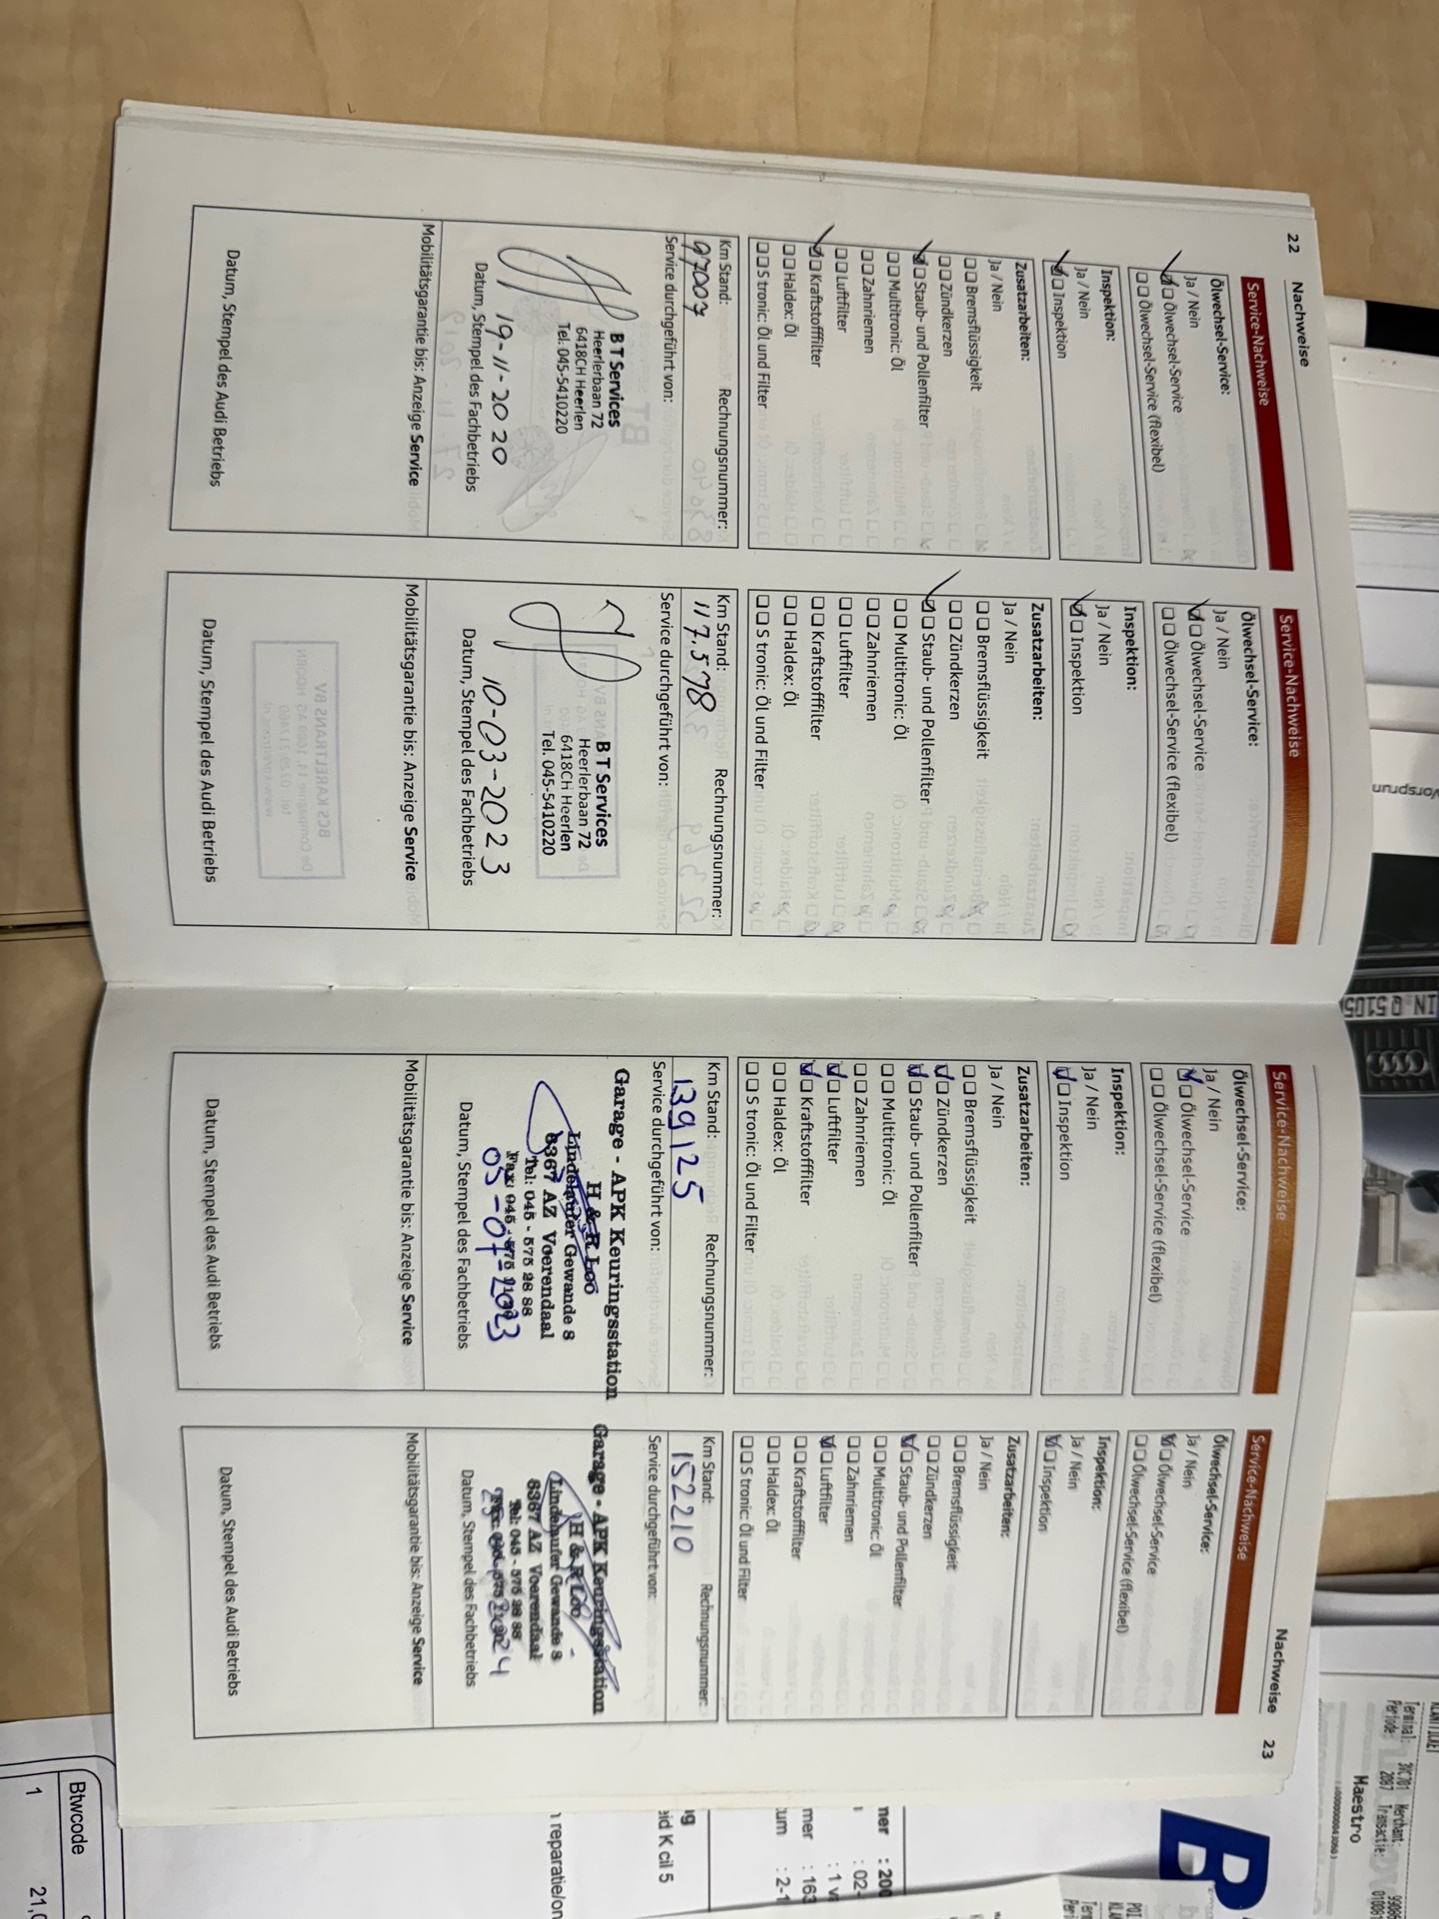 22
Nachweise
Service-Nachweise
Ölwechsel-Service:
Ja / Nein
Ölwechsel-Service
Ölwechsel-Service (flexibel)
Inspektion:
Ja / Nein
Inspektion
Zusatzarbeiten:
Ja / Nein
Bremsflüssigkeit
Zündkerzen
Staub- und Pollenfilter
Multitronic: Öl
Zahnriemen
Luftfilter
Kraftstofffilter
Haldex: Öl
S tronic: Öl und Filter
Km Stand: Rechnungsnummer:
97007
Service durchgeführt von:
B T Services
Heerlerbaan 72
6418CH Heerlen
Tel. 045-5410220
19-11-2020
Datum, Stempel des Fachbetriebs
Mobilitätsgarantie bis: Anzeige Service
Datum, Stempel des Audi Betriebs
Service-Nachweise
Ölwechsel-Service:
Ja / Nein
Ölwechsel-Service
Ölwechsel-Service (flexibel)
Inspektion:
Ja / Nein
Inspektion
Zusatzarbeiten:
Ja / Nein
Bremsflüssigkeit
Zündkerzen
Staub- und Pollenfilter
Multitronic: Öl
Zahnriemen
Luftfilter
Kraftstofffilter
Haldex: Öl
S tronic: Öl und Filter
Km Stand: Rechnungsnummer:
117.578
Service durchgeführt von:
B T Services
Heerlerbaan 72
6418CH Heerlen
Tel. 045-5410220
10-03-2023
Datum, Stempel des Fachbetriebs
Mobilitätsgarantie bis: Anzeige Service
Datum, Stempel des Audi Betriebs
Service-Nachweise
Ölwechsel-Service:
Ja / Nein
Ölwechsel-Service
Ölwechsel-Service (flexibel)
Inspektion:
Ja / Nein
Inspektion
Zusatzarbeiten:
Ja / Nein
Bremsflüssigkeit
Zündkerzen
Staub- und Pollenfilter
Multitronic: Öl
Zahnriemen
Luftfilter
Kraftstofffilter
Haldex: Öl
S tronic: Öl und Filter
Km Stand: Rechnungsnummer:
139125
Service durchgeführt von:
Garage - APK Keuringsstation
H & R Loo
Lindelaufer Gewande 8
6367 AZ Voerendaal
Tel: 045 - 575 28 88
05-07-2023
Datum, Stempel des Fachbetriebs
Mobilitätsgarantie bis: Anzeige Service
Datum, Stempel des Audi Betriebs
Nachweise
23
Service-Nachweise
Ölwechsel-Service:
Ja / Nein
Ölwechsel-Service
Ölwechsel-Service (flexibel)
Inspektion:
Ja / Nein
Inspektion
Zusatzarbeiten:
Ja / Nein
Bremsflüssigkeit
Zündkerzen
Staub- und Pollenfilter
Multitronic: Öl
Zahnriemen
Luftfilter
Kraftstofffilter
Haldex: Öl
S tronic: Öl und Filter
Km Stand: Rechnungsnummer:
152210
Service durchgeführt von:
Garage - APK Keuringsstation
H & R Loo
Lindelaufer Gewande 8
6367 AZ Voerendaal
Tel: 045 - 575 28 88
Datum, Stempel des Fachbetriebs
Mobilitätsgarantie bis: Anzeige Service
Datum, Stempel des Audi Betriebs
Vorsprun
IN Q 5105
Maestro
B
mer : 163
: 02-
aid K cil 5
n reparatie/on
Btwcode
1
21,0